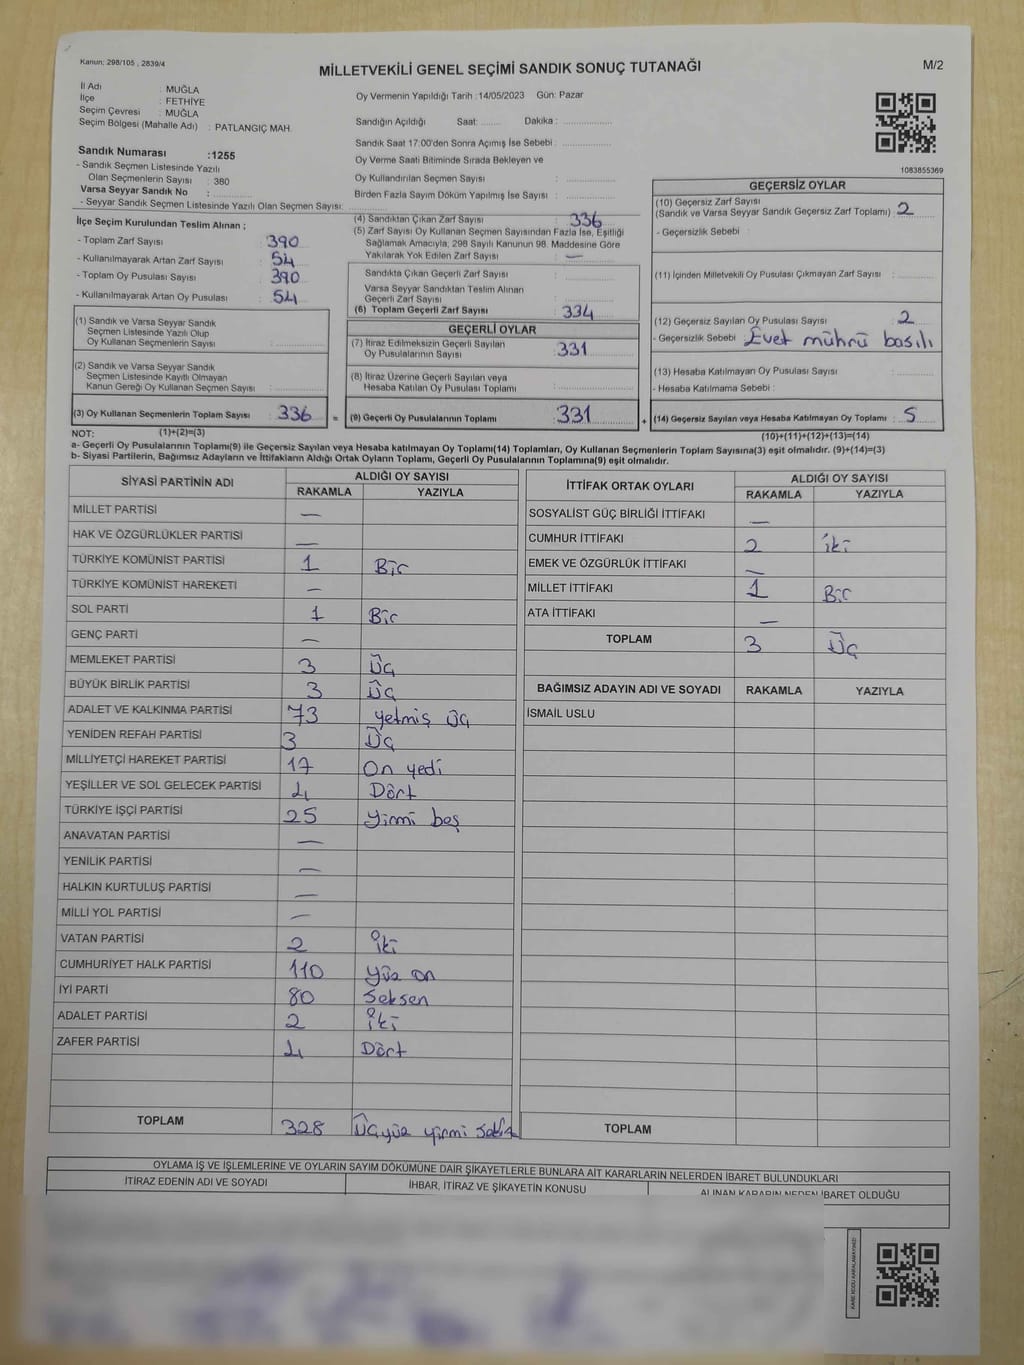 Kanun: 298/105 , 2839/4
MİLLETVEKİLİ GENEL SEÇİMİ SANDIK SONUÇ TUTANAĞI
M/2
İl Adı : MUĞLA
İlçe : FETHİYE
Seçim Çevresi : MUĞLA
Seçim Bölgesi (Mahalle Adı) : PATLANGIÇ MAH.
Oy Vermenin Yapıldığı Tarih :14/05/2023 Gün: Pazar
Sandığın Açıldığı Saat: ........ Dakika : ..................
Sandık Saat 17:00'den Sonra Açımış İse Sebebi : ..................
Oy Verme Saati Bitiminde Sırada Bekleyen ve
Oy Kullandırılan Seçmen Sayısı : ..................
Birden Fazla Sayım Döküm Yapılmış İse Sayısı : ..................
1083855369
Sandık Numarası :1255
- Sandık Seçmen Listesinde Yazılı
Olan Seçmenlerin Sayısı : 380
Varsa Seyyar Sandık No : ..................
- Seyyar Sandık Seçmen Listesinde Yazılı Olan Seçmen Sayısı: ..................
İlçe Seçim Kurulundan Teslim Alınan ;
- Toplam Zarf Sayısı : 390
- Kullanılmayarak Artan Zarf Sayısı : 54
- Toplam Oy Pusulası Sayısı : 390
- Kullanılmayarak Artan Oy Pusulası : 54
(1) Sandık ve Varsa Seyyar Sandık
Seçmen Listesinde Yazılı Olup
Oy Kullanan Seçmenlerin Sayısı : ..................
(2) Sandık ve Varsa Seyyar Sandık
Seçmen Listesinde Kayıtlı Olmayan
Kanun Gereği Oy Kullanan Seçmen Sayısı : ..................
(3) Oy Kullanan Seçmenlerin Toplam Sayısı : 336
(1)+(2)=(3)
(4) Sandıktan Çıkan Zarf Sayısı : 336
(5) Zarf Sayısı Oy Kullanan Seçmen Sayısından Fazla İse, Eşitliği
Sağlamak Amacıyla, 298 Sayılı Kanunun 98. Maddesine Göre
Yakılarak Yok Edilen Zarf Sayısı : —
Sandıkta Çıkan Geçerli Zarf Sayısı : ..................
Varsa Seyyar Sandıktan Teslim Alınan
Geçerli Zarf Sayısı : ..................
(6) Toplam Geçerli Zarf Sayısı : 334
GEÇERLİ OYLAR
(7) İtiraz Edilmeksizin Geçerli Sayılan
Oy Pusulalarının Sayısı : 331
(8) İtiraz Üzerine Geçerli Sayılan veya
Hesaba Katılan Oy Pusulaları Toplamı : ..................
= (9) Geçerli Oy Pusulalarının Toplamı : 331
GEÇERSİZ OYLAR
(10) Geçersiz Zarf Sayısı
(Sandık ve Varsa Seyyar Sandık Geçersiz Zarf Toplamı) : 2
- Geçersizlik Sebebi :
(11) İçinden Milletvekili Oy Pusulası Çıkmayan Zarf Sayısı : ..................
(12) Geçersiz Sayılan Oy Pusulası Sayısı : 2
- Geçersizlik Sebebi : Evet mührü basılı
(13) Hesaba Katılmayan Oy Pusulası Sayısı : ..................
- Hesaba Katılmama Sebebi :
+ (14) Geçersiz Sayılan veya Hesaba Katılmayan Oy Toplamı : 5
(10)+(11)+(12)+(13)=(14)
NOT:
a- Geçerli Oy Pusulalarının Toplamı(9) ile Geçersiz Sayılan veya Hesaba katılmayan Oy Toplamı(14) Toplamları, Oy Kullanan Seçmenlerin Toplam Sayısına(3) eşit olmalıdır. (9)+(14)=(3)
b- Siyasi Partilerin, Bağımsız Adayların ve İttifakların Aldığı Ortak Oyların Toplamı, Geçerli Oy Pusulalarının Toplamına(9) eşit olmalıdır.
SİYASİ PARTİNİN ADI ALDIĞI OY SAYISI
RAKAMLA YAZIYLA
MİLLET PARTİSİ —
HAK VE ÖZGÜRLÜKLER PARTİSİ —
TÜRKİYE KOMÜNİST PARTİSİ 1 Bir
TÜRKİYE KOMÜNİST HAREKETİ —
SOL PARTİ 1 Bir
GENÇ PARTİ —
MEMLEKET PARTİSİ 3 Üç
BÜYÜK BİRLİK PARTİSİ 3 Üç
ADALET VE KALKINMA PARTİSİ 73 yetmiş üç
YENİDEN REFAH PARTİSİ 3 Üç
MİLLİYETÇİ HAREKET PARTİSİ 17 On yedi
YEŞİLLER VE SOL GELECEK PARTİSİ 4 Dört
TÜRKİYE İŞÇİ PARTİSİ 25 yirmi beş
ANAVATAN PARTİSİ —
YENİLİK PARTİSİ —
HALKIN KURTULUŞ PARTİSİ —
MİLLİ YOL PARTİSİ —
VATAN PARTİSİ 2 iki
CUMHURİYET HALK PARTİSİ 110 yüz on
İYİ PARTİ 80 seksen
ADALET PARTİSİ 2 iki
ZAFER PARTİSİ 4 Dört
TOPLAM 328 Üçyüz yirmi sekiz
İTTİFAK ORTAK OYLARI ALDIĞI OY SAYISI
RAKAMLA YAZIYLA
SOSYALİST GÜÇ BİRLİĞİ İTTİFAKI —
CUMHUR İTTİFAKI 2 iki
EMEK VE ÖZGÜRLÜK İTTİFAKI —
MİLLET İTTİFAKI 1 Bir
ATA İTTİFAKI —
TOPLAM 3 Üç
BAĞIMSIZ ADAYIN ADI VE SOYADI RAKAMLA YAZIYLA
İSMAİL USLU
TOPLAM
OYLAMA İŞ VE İŞLEMLERİNE VE OYLARIN SAYIM DÖKÜMÜNE DAİR ŞİKAYETLERLE BUNLARA AİT KARARLARIN NELERDEN İBARET BULUNDUKLARI
İTİRAZ EDENİN ADI VE SOYADI İHBAR, İTİRAZ VE ŞİKAYETİN KONUSU ALINAN KARARIN NEDEN İBARET OLDUĞU
KARE KODU KARALAMAYINIZ!